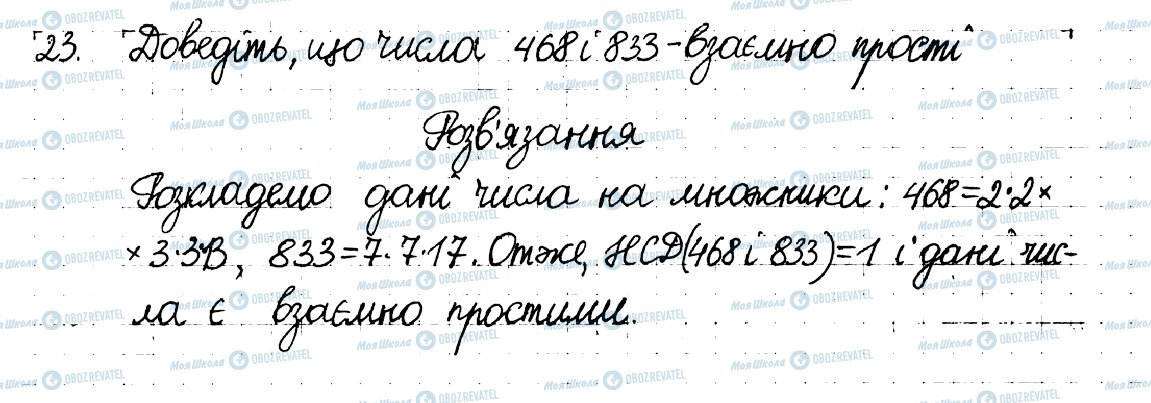 23. Доведіть, що числа 468 і 833 - взаємно прості
Розв'язання
Розкладемо дані числа на множники: 468 = 2·2×
× 3·3·13, 833 = 7·7·17. Отже, НСД(468 і 833) = 1 і дані чис-
ла є взаємно простими.